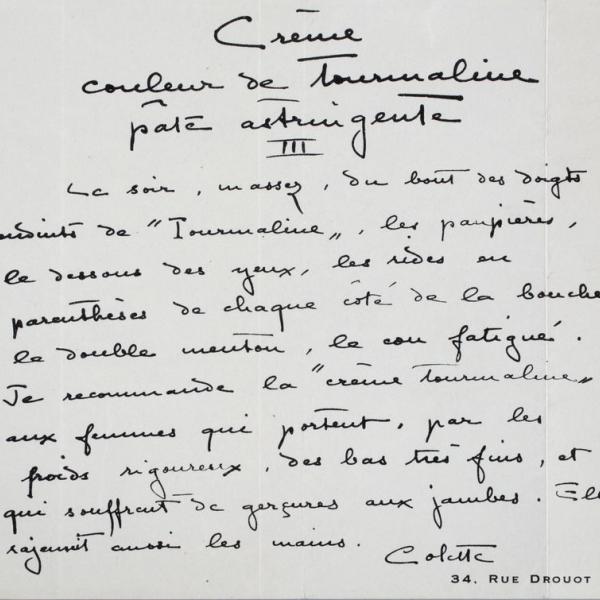 Crème
couleur de Tourmaline
pâte astringente
III
Le soir, massez, du bout des doigts
enduits de "Tourmaline", les paupières,
le dessous des yeux, les rides en
parenthèses de chaque côté de la bouche
le double menton, le cou fatigué.
Je recommande la "crème Tourmaline"
aux femmes qui portent, par les
froids rigoureux, des bas très fins, et
qui souffrent de gerçures aux jambes. Elle
rajeunit aussi les mains.
Colette
34, RUE DROUOT